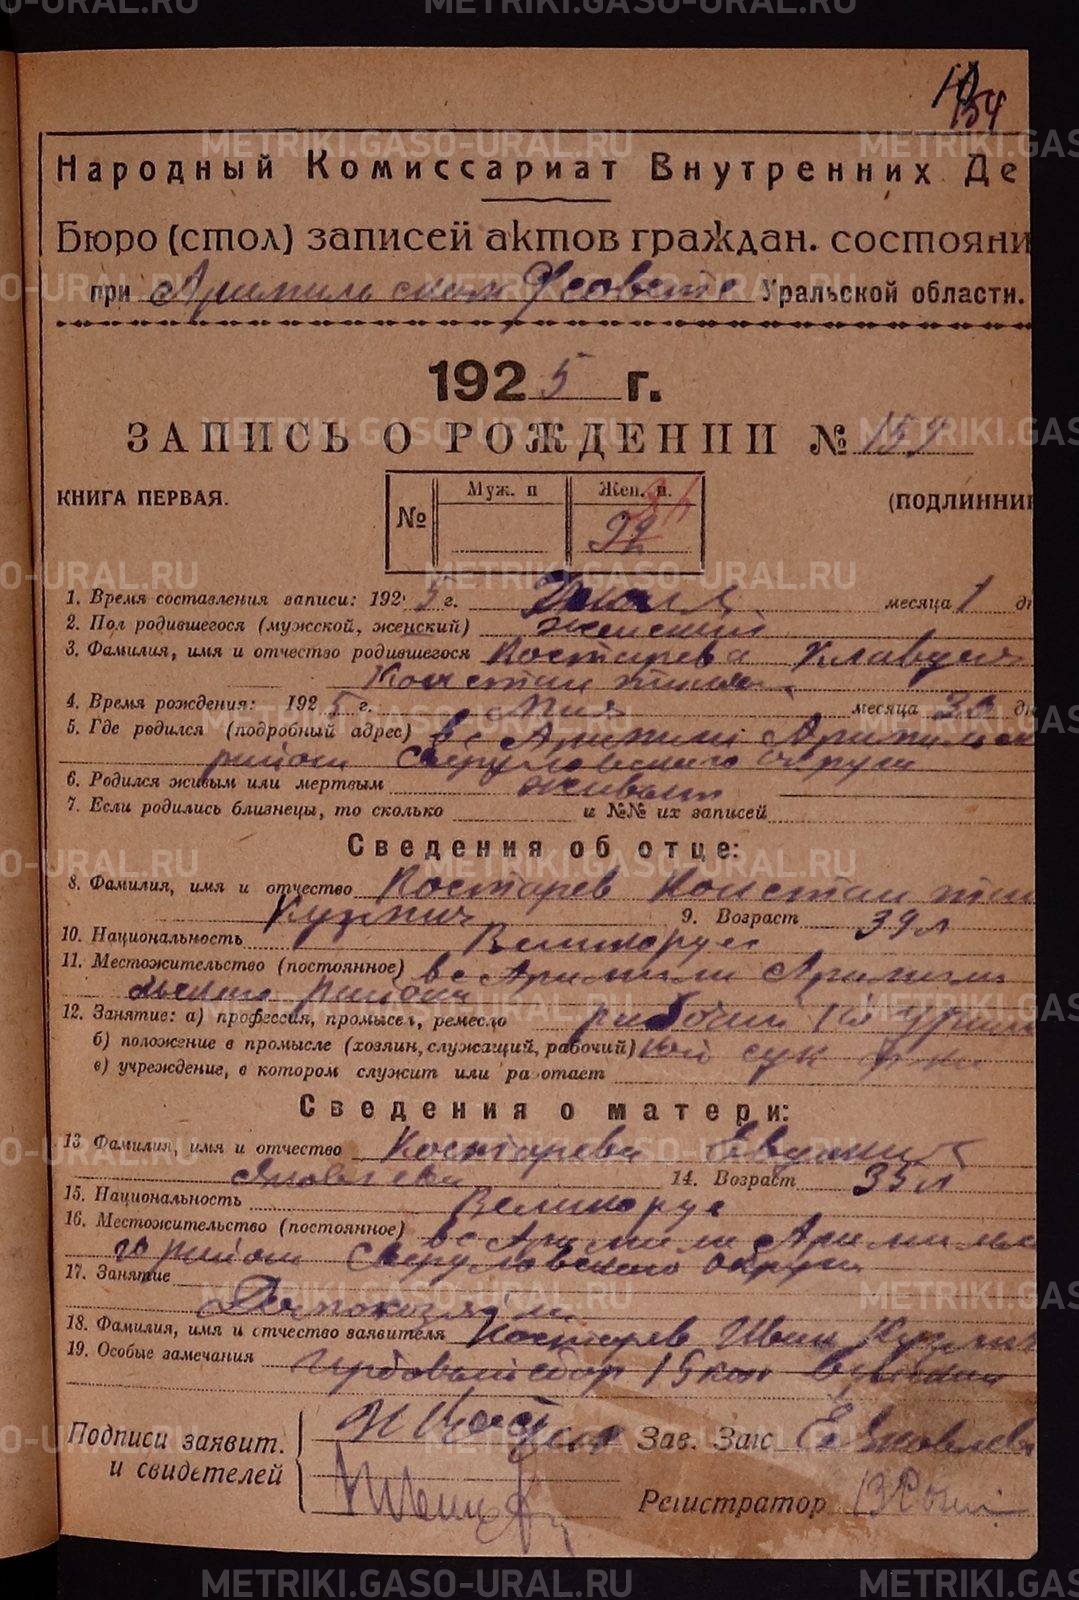 154
Народный Комиссариат Внутренних Де
Бюро (стол) записей актов граждан. состояни
при Арамильском Уральской области.
1925 г.
ЗАПИСЬ О РОЖДЕНИИ № 159
КНИГА ПЕРВАЯ.
(ПОДЛИННИК
№ Муж. п Жен. п.
1. Время составления записи: 1925 г. Июня месяца 1 дн
2. Пол родившегося (мужской, женский) женский
3. Фамилия, имя и отчество родившегося Костарева Клавдия
Константин
4. Время рождения: 1925 г. Мая месяца 30 дн
5. Где родился (подробный адрес) в с Арамили Арамильск
район Свердловского округа
6. Родился живым или мертвым живым
7. Если родились близнецы, то сколько и №№ их записей
Сведения об отце:
8. Фамилия, имя и отчество Костарев Констан тин
Кузмич 9. Возраст 39 л
10. Национальность Великорус
11. Местожительство (постоянное) в с Арамили Арамили
льского района
12. Занятие: а) профессия, промысел, ремесло рабочий
б) положение в промысле (хозяин, служащий, рабочий) сук
в) учреждение, в котором служит или ра отает
Сведения о матери:
13 Фамилия, имя и отчество Костарева Евдокия
Яковлевна 14. Возраст 35 л
15. Национальность Великорус
16. Местожительство (постоянное) в с Арамили Арамильс
го район Свердловского округа
17. Занятие
Домохозяйка
18. Фамилия, имя и отчество заявителя Костарев Иван Кузмич
19. Особые замечания Гербовый сбор 15 коп
Подписи заявит.
и свидетелей
Зав. Загс Е Яковлева
Регистратор
METRIKI.GASO-URAL.RU